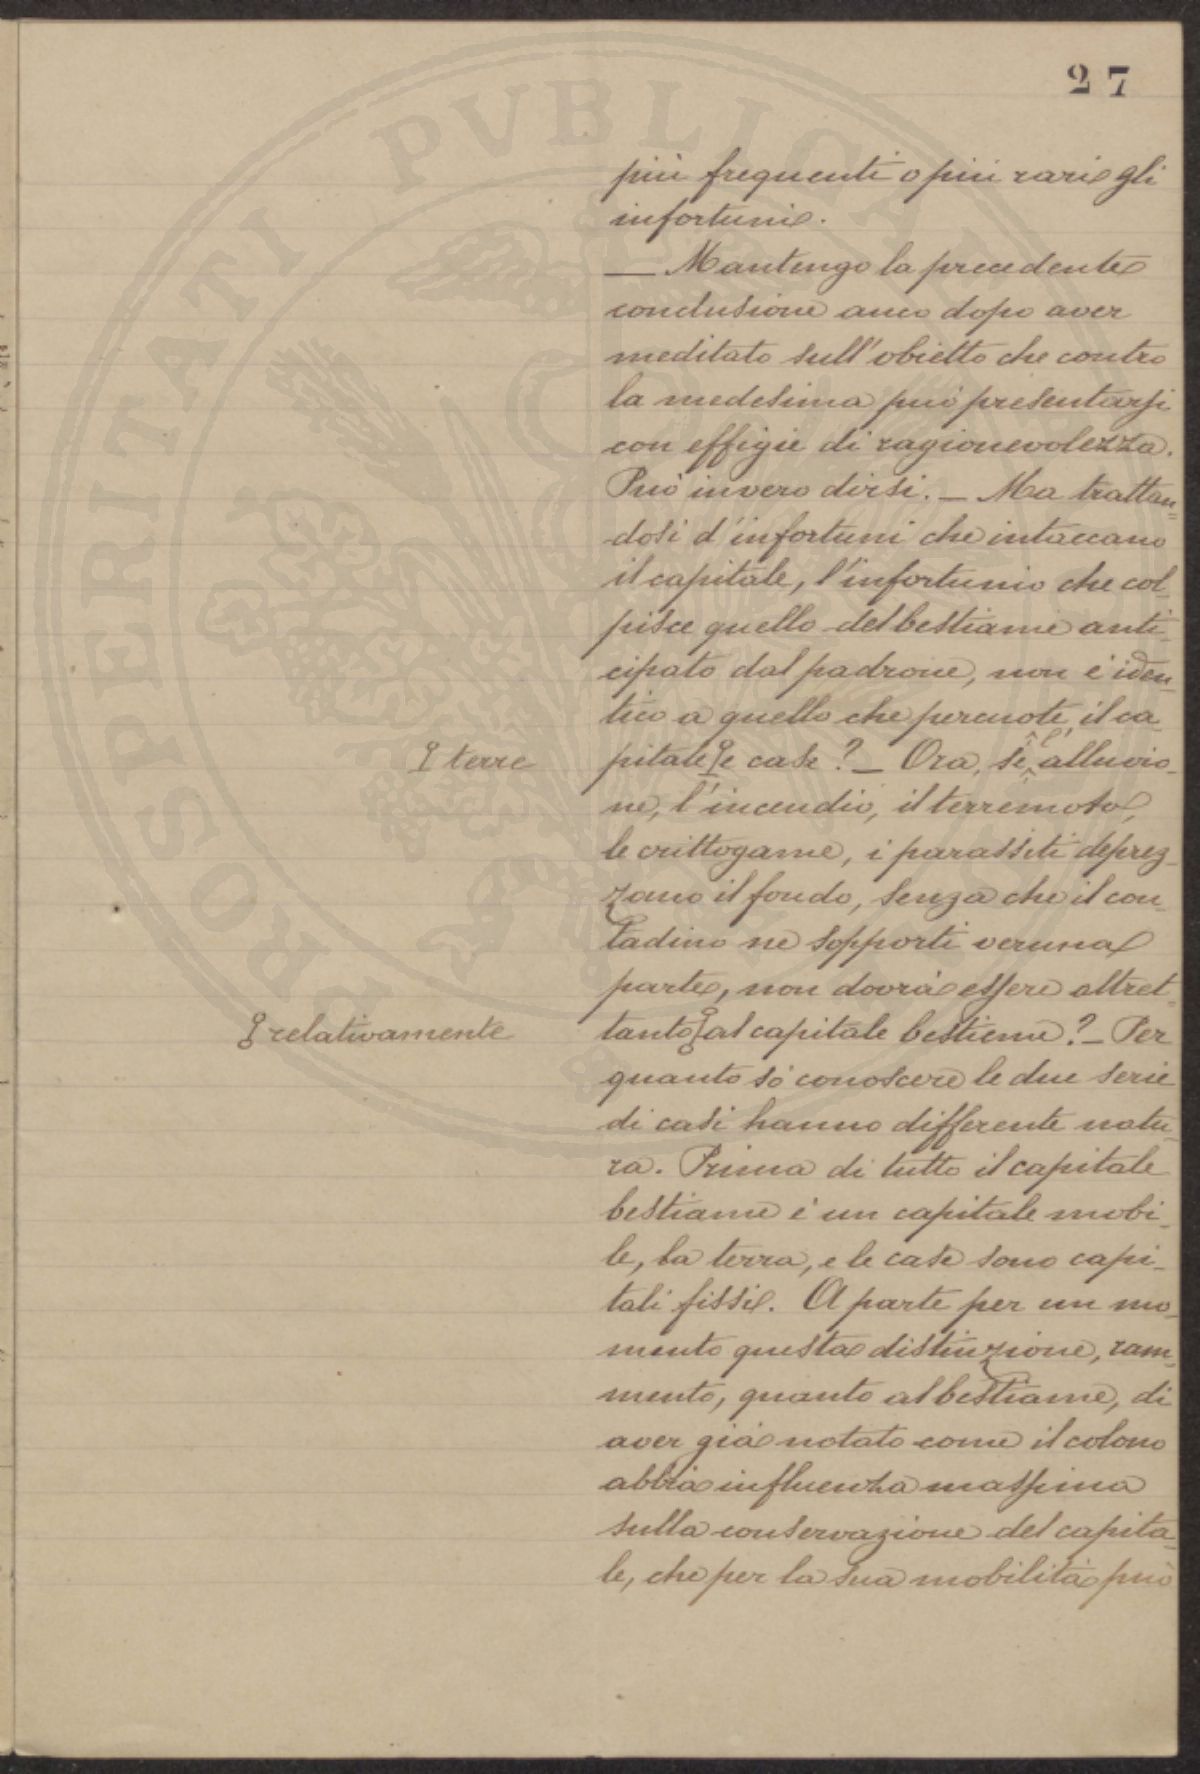 27
più frequenti o più rari gli
infortuni.
— Mantengo la precedente
conclusione anco dopo aver
meditato sull'obietto che contro
la medesima può presentarsi
con effigie di ragionevolezza.
Può invero dirsi. — Ma trattan-
dosi d'infortuni che intaccano
il capitale, l'infortunio che col-
pisce quello del bestiame anti-
cipato dal padrone, non è iden-
tico a quello che percuote il ca-
pitale e case? — Ora, se l'alluvio-
terre
ne, l'incendio, il terremoto,
le crittogame, i parassiti deprez-
zano il fondo, senza che il con-
tadino ne sopporti veruna
parte, non dovrà essere altret-
tanto al capitale bestieme? — Per
relativamente
quanto sò conoscere le due serie
di casi hanno differente natu-
ra. Prima di tutto il capitale
bestiame è un capitale mobi-
le, la terra, e le case sono capi-
tali fissi. A parte per un mo-
mento questa distinzione, ram-
mento, quanto al bestiame, di
aver già notato come il colono
abbia influenza massima
sulla conservazione del capita-
le, che per la sua mobilità può
PROSPERITATI PVBLICAE